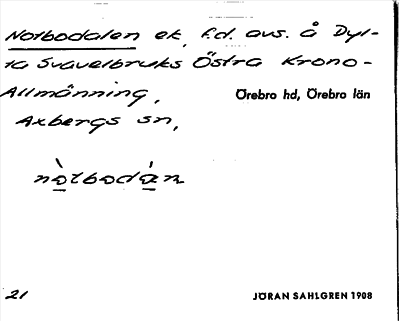 Notbodalen ek, f.d. avs. å Dyl-
ta Svavelbruks Östra Krono-
Allmänning,
Örebro hd, Örebro län
Axbergs sn,
nòtbodàn
21
JÖRAN SAHLGREN 1908